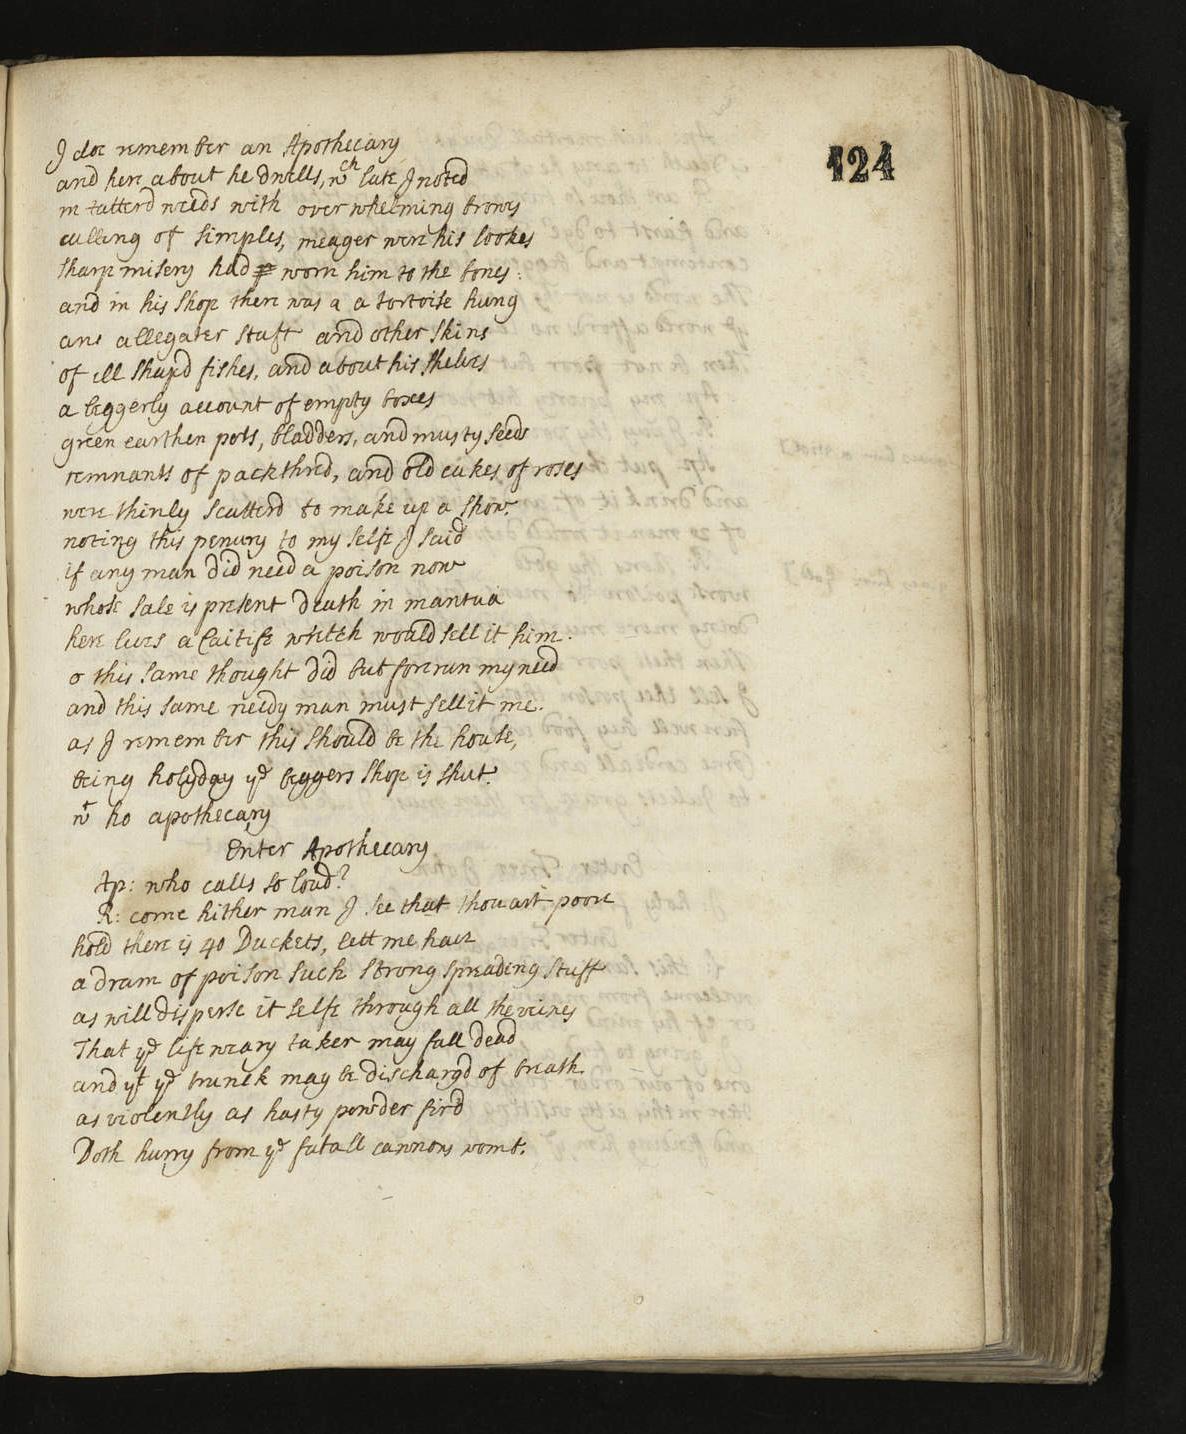 124
I doe remember an Apothecary
and here about he dwells, wch late I noted
in tatterd weeds with overwhelming browes
culling of simples, meager were his lookes
sharp misery had worn him to the bones:
and in his shop there was a a tortoise hung
ane allegater stuft and other skins
of ill shapd fishes, and about his shelves
a beggerly account of empty boxes
green earthen pots, bladders, and musty seeds
remnants of packthred, and old cakes of roses
were thinly scatterd to make up a show.
noting this penury to my selfe I said
if any man did need a poison now
whose sale is present death in mantua
here lives a Caitife which would sell it him.
o this same thought did but forerun my need
and this same needy man must sell it me.
as I remember this should be the house,
being holyday ye beggers shop is shut.
wt ho apothecary
Enter Apothecary
Ap: who calls so loud?
R: come hither man I see that thou art poore
hold there is 40 Duckets, lett me have
a dram of poison such strong spreading stuff
as will disperse it selfe through all the veines
That ye life weary taker may fall dead
and yt ye trunck may be dischargd of breath
as violently as hasty powder fird
Doth hurry from ye fatall cannons womb.